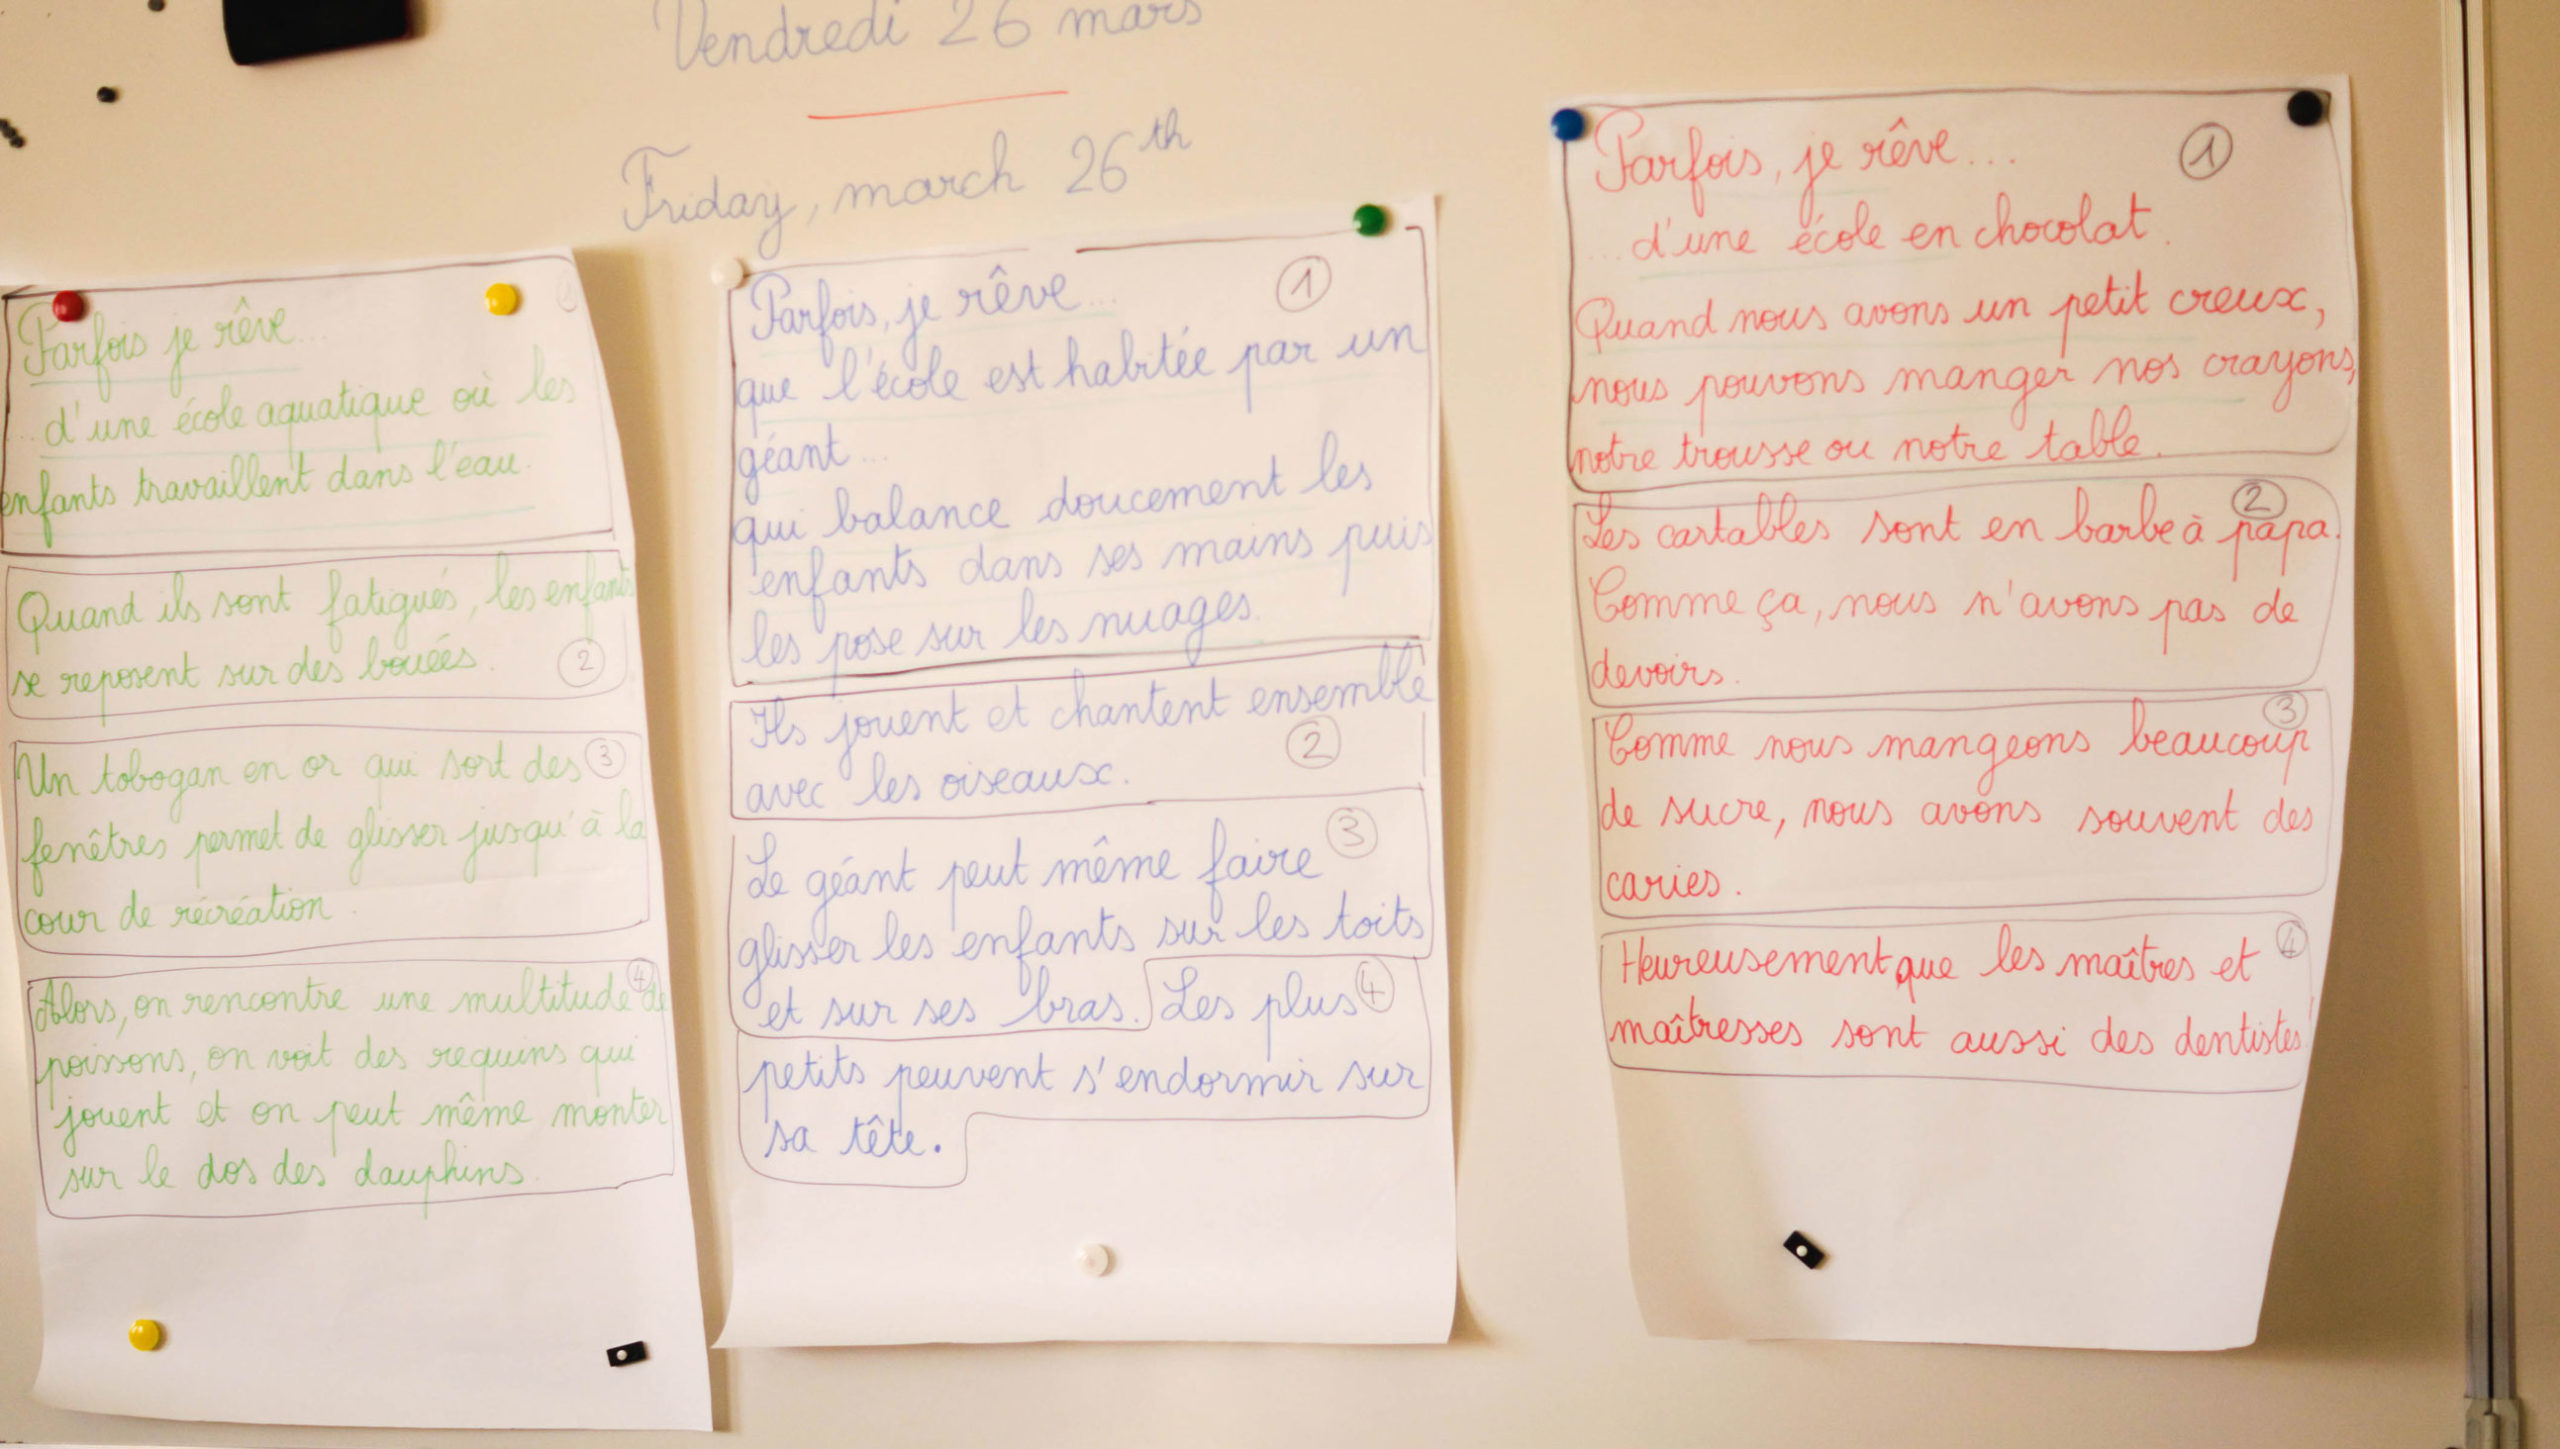 Vendredi 26 mars
Friday, march 26th
Parfois je rêve... 1
... d'une école aquatique où les
enfants travaillent dans l'eau.
Quand ils sont fatigués, les enfants
se reposent sur des bouées. 2
Un tobogan en or qui sort des 3
fenêtres permet de glisser jusqu'à la
cour de récréation.
Alors, on rencontre une multitude de 4
poissons, on voit des requins qui
jouent et on peut même monter
sur le dos des dauphins.
Parfois, je rêve... 1
que l'école est habitée par un
géant...
qui balance doucement les
enfants dans ses mains puis
les pose sur les nuages.
Ils jouent et chantent ensemble
avec les oiseaux. 2
Le géant peut même faire 3
glisser les enfants sur les toits
et sur ses bras. Les plus 4
petits peuvent s'endormir sur
sa tête.
Parfois, je rêve... 1
... d'une école en chocolat.
Quand nous avons un petit creux,
nous pouvons manger nos crayons,
notre trousse ou notre table.
Les cartables sont en barbe à papa. 2
Comme ça, nous n'avons pas de
devoirs.
Comme nous mangeons beaucoup 3
de sucre, nous avons souvent des
caries.
Heureusement que les maîtres et 4
maîtresses sont aussi des dentistes!